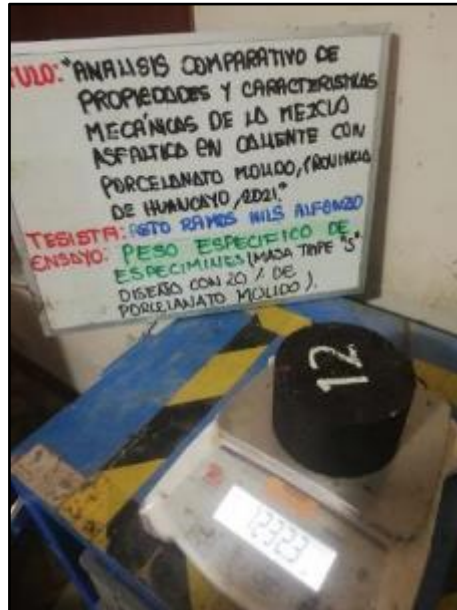 TULO: "ANALISIS COMPARATIVO DE
PROPIEDADES Y CARACTERISTICAS
MECÁNICAS DE LA MEZCLA
ASFALTICA EN CALIENTE CON
PORCELANATO MOLIDO, PROVINCIA
DE HUANCAYO, 2021."
TESISTA: ASTO RAMOS NILS ALFONZO
ENSAYO: PESO ESPECIFICO DE
ESPECIMINES (MASA TRIPE "S"
DISEÑO CON 20 % DE
PORCELANATO MOLIDO).
12
1232.3